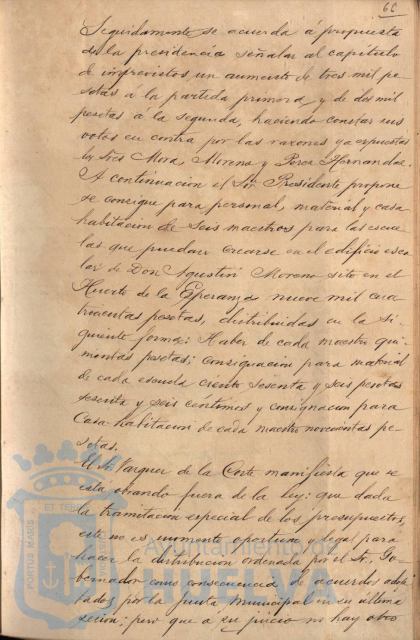 60
Seguidamente se acuerda á propuesta
de la presidencia señalar al capítulo
de imprevistos un aumento de tres mil pe
setas á la partida primera y de dos mil
pesetas á la segunda, haciendo constar sus
votos en contra por las razones ya expuestas
los Sres Mora, Moreno y Perea Hernandez.
A continuacion el Sr. Presidente propone
se consigne para personal, material y casa
habitacion de seis maestros para las escue
las que puedan crearse en el edificio esco
lar de Don Agustin Moreno sito en el
Huerto de la Esperanza nueve mil cua
trocientas pesetas, distribuidas en la si
guiente forma: Haber de cada maestro qui
nientas pesetas; consignacion para material
de cada escuela ciento sesenta y seis pesetas
sesenta y seis céntimos y consignacion para
Casa-habitacion de cada maestro novecientas pe
setas.
El Sr. Vazquez de la Corte manifiesta que se
está obrando fuera de la ley: que dada
la tramitacion especial de los presupuestos,
este no es momento oportuno y legal para
hacer la distribucion ordenada por el Sr. Go
bernador como consecuencia de acuerdos adop
tados por la Junta Municipal en su última
sesion; pero que a su juicio no hay otro
PORTUS MARIS
Ayuntamiento de
HUELVA